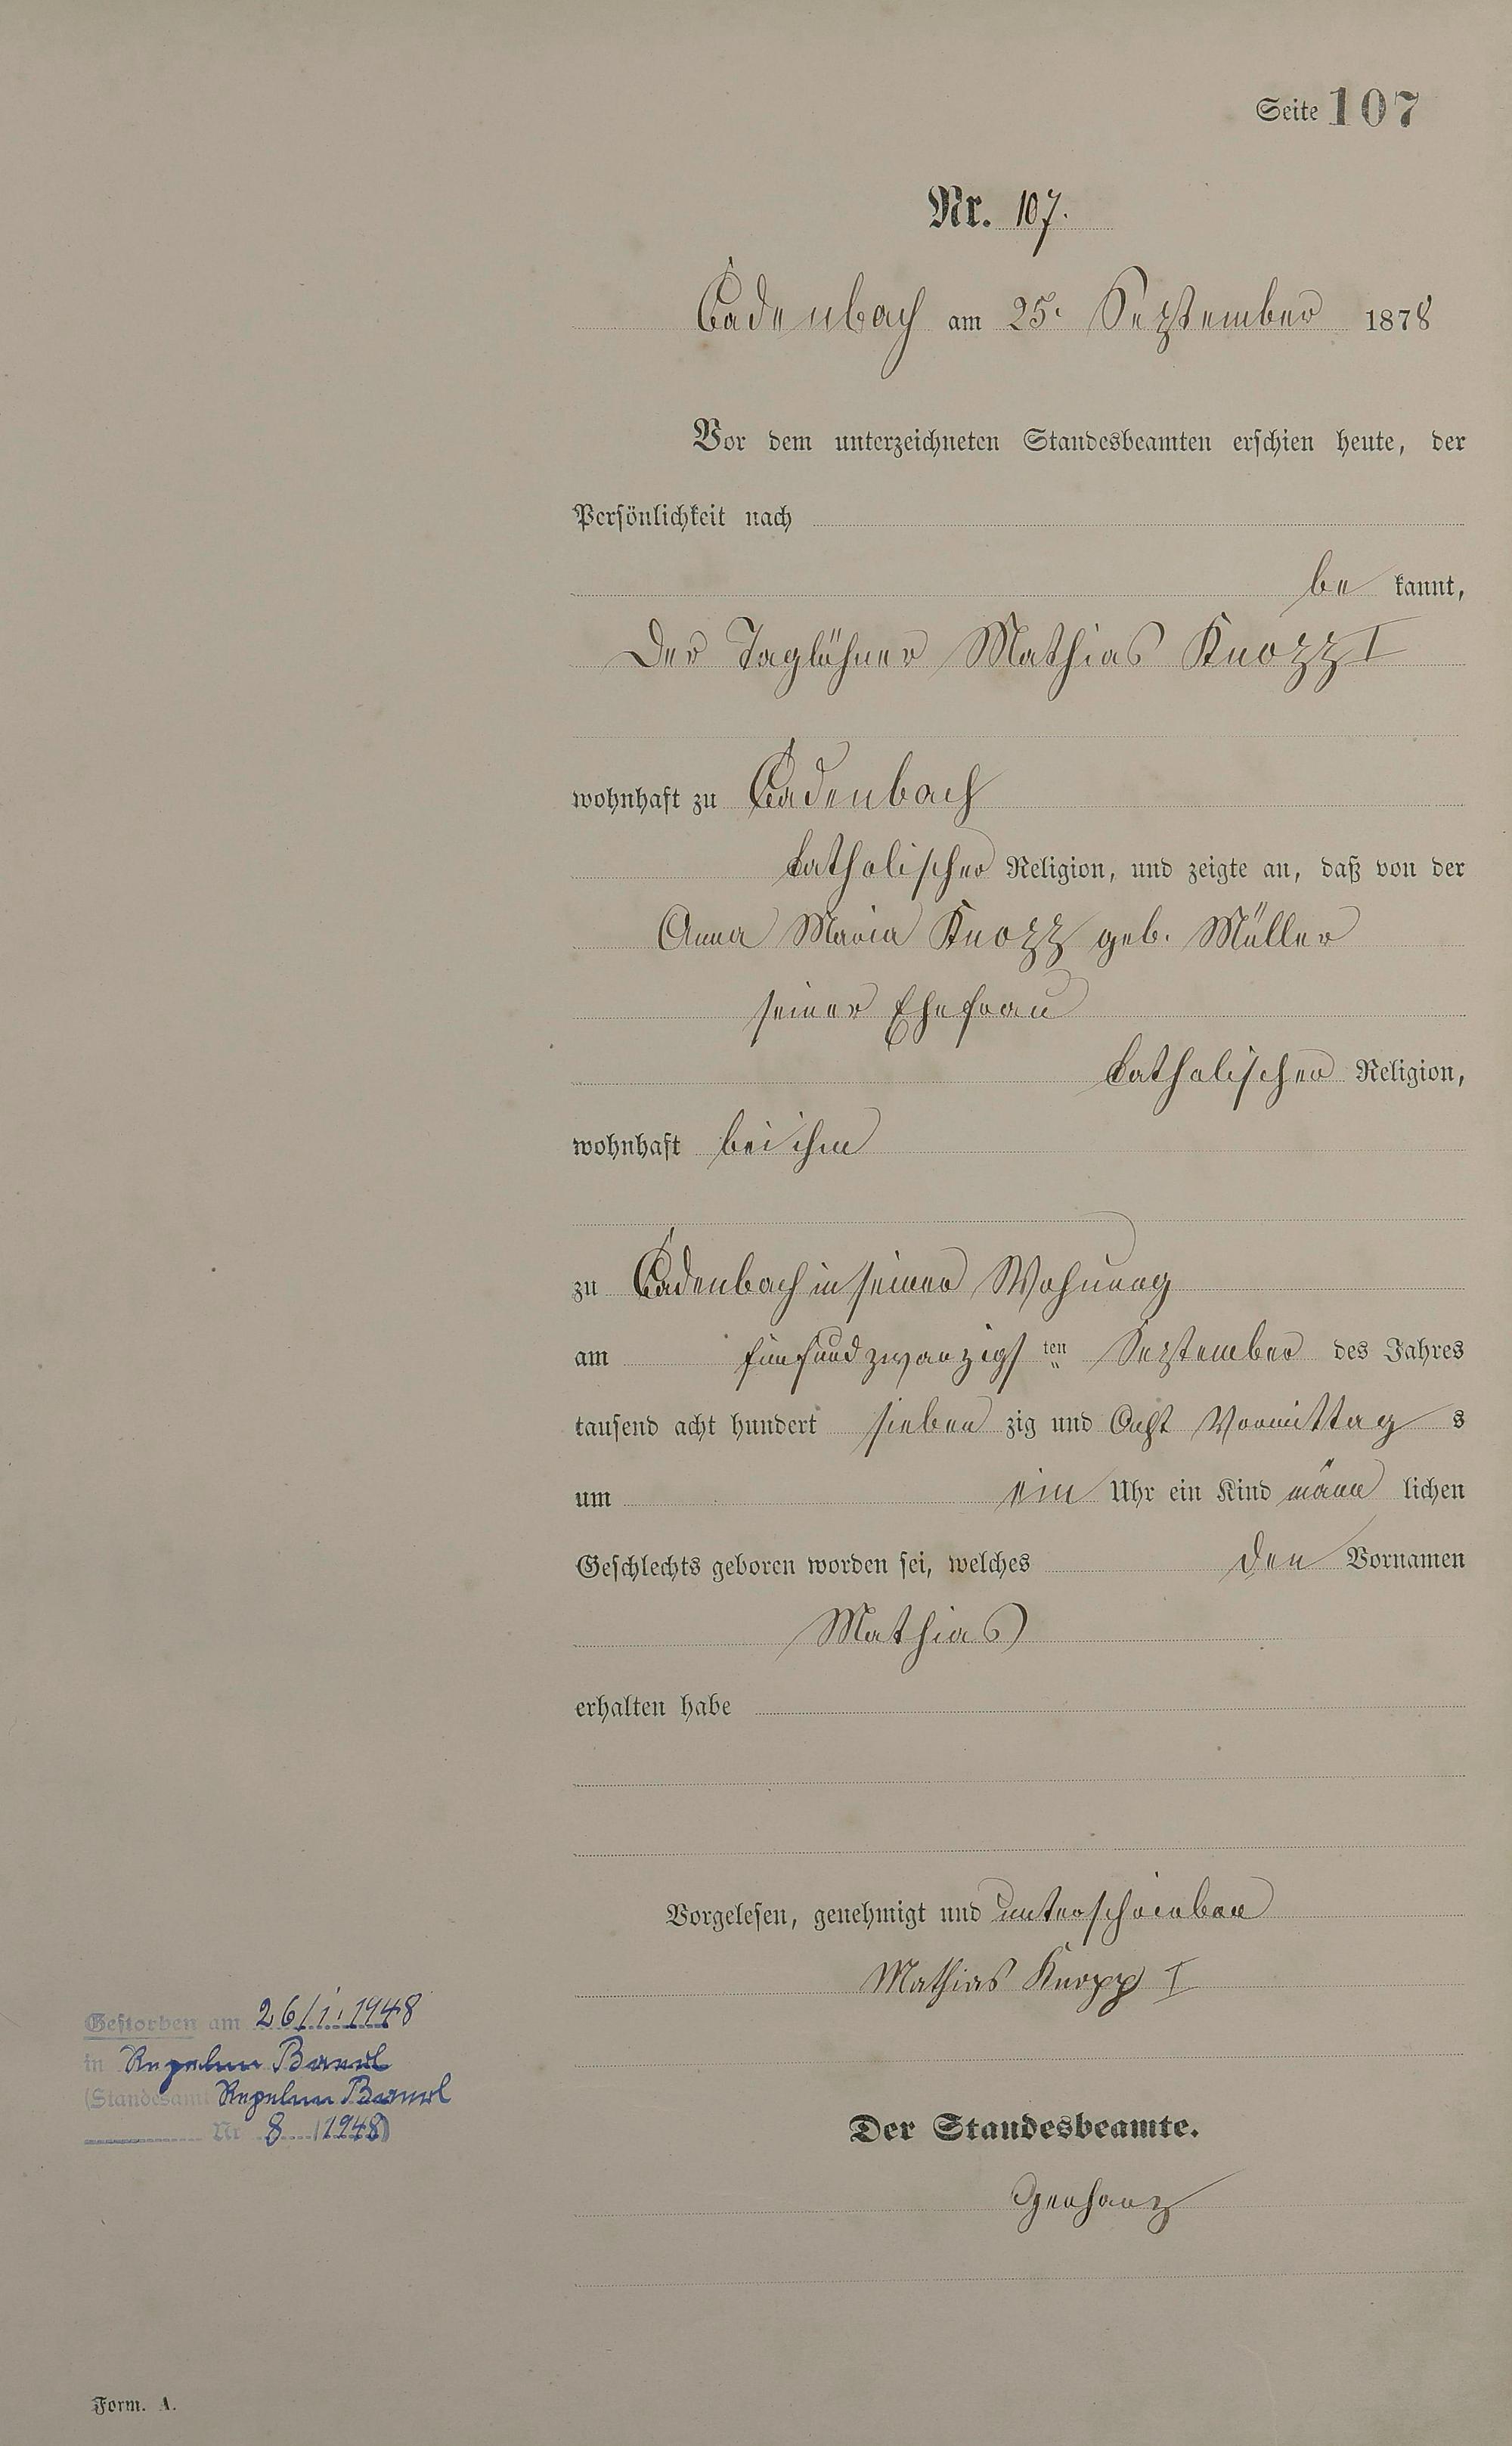 Seite 107
Nr. 107.
Cadenbach am 25. September 1878
Vor dem unterzeichneten Standesbeamten erschien heute, der
Persönlichkeit nach
be kannt,
Der Taglöhner Mathias Knopp I
wohnhaft zu Cadenbach
katholischer Religion, und zeigte an, daß von der
Anna Maria Knopp geb. Müller
seiner Ehefrau
katholischer Religion,
wohnhaft bei ihm
zu Cadenbach in seiner Wohnung
am fünfundzwanzigs ten September des Jahres
tausend acht hundert sieben zig und Acht Vormittag s
um ein Uhr ein Kind männ lichen
Geschlechts geboren worden sei, welches den Vornamen
Mathias
erhalten habe
Vorgelesen, genehmigt und unterschrieben
Mathias Knopp I
Gestorben am 26/1. 1948
in Repelen Baerl
(Standesamt Repelen Baerl
Nr 8 / 1948)
Der Standesbeamte.
Form. A.